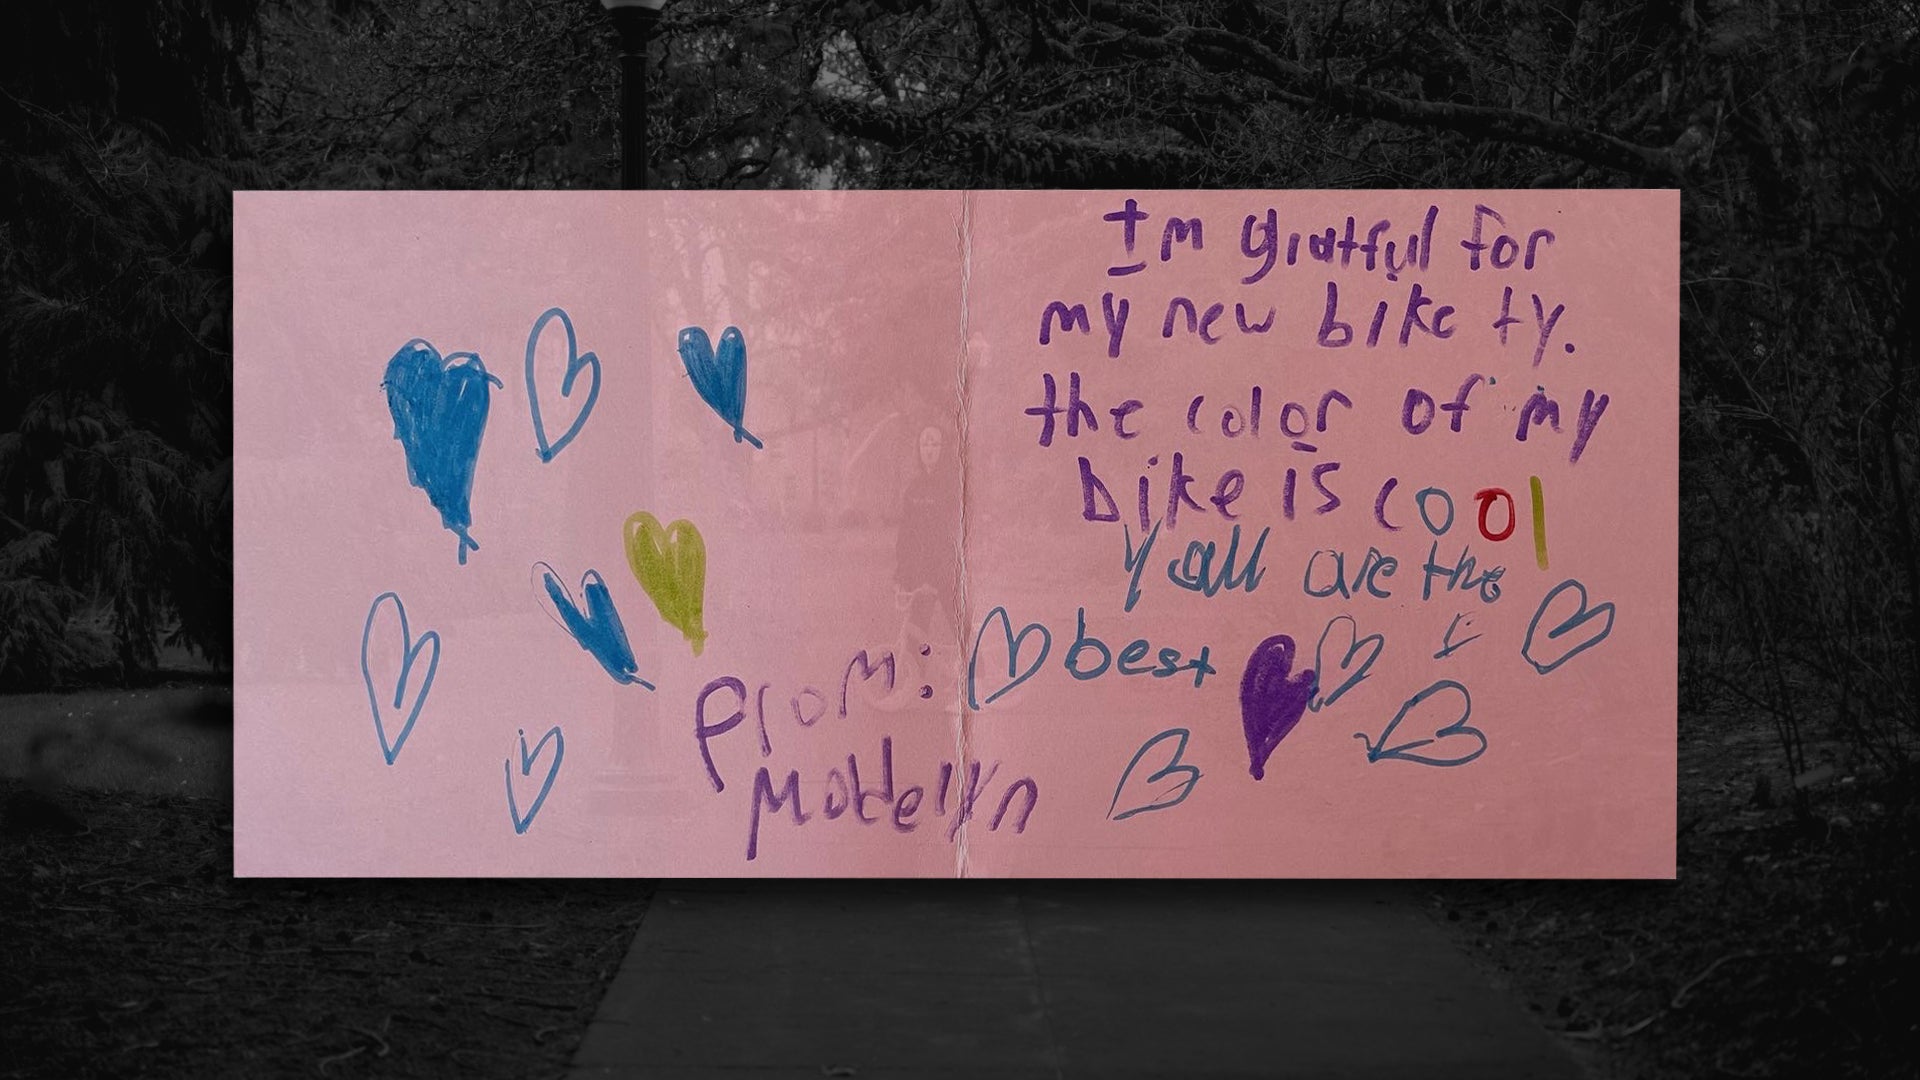 I'm gratful for
my new bike ty.
the color of my
bike is cool
y'all are the
best
From:
Madelyn